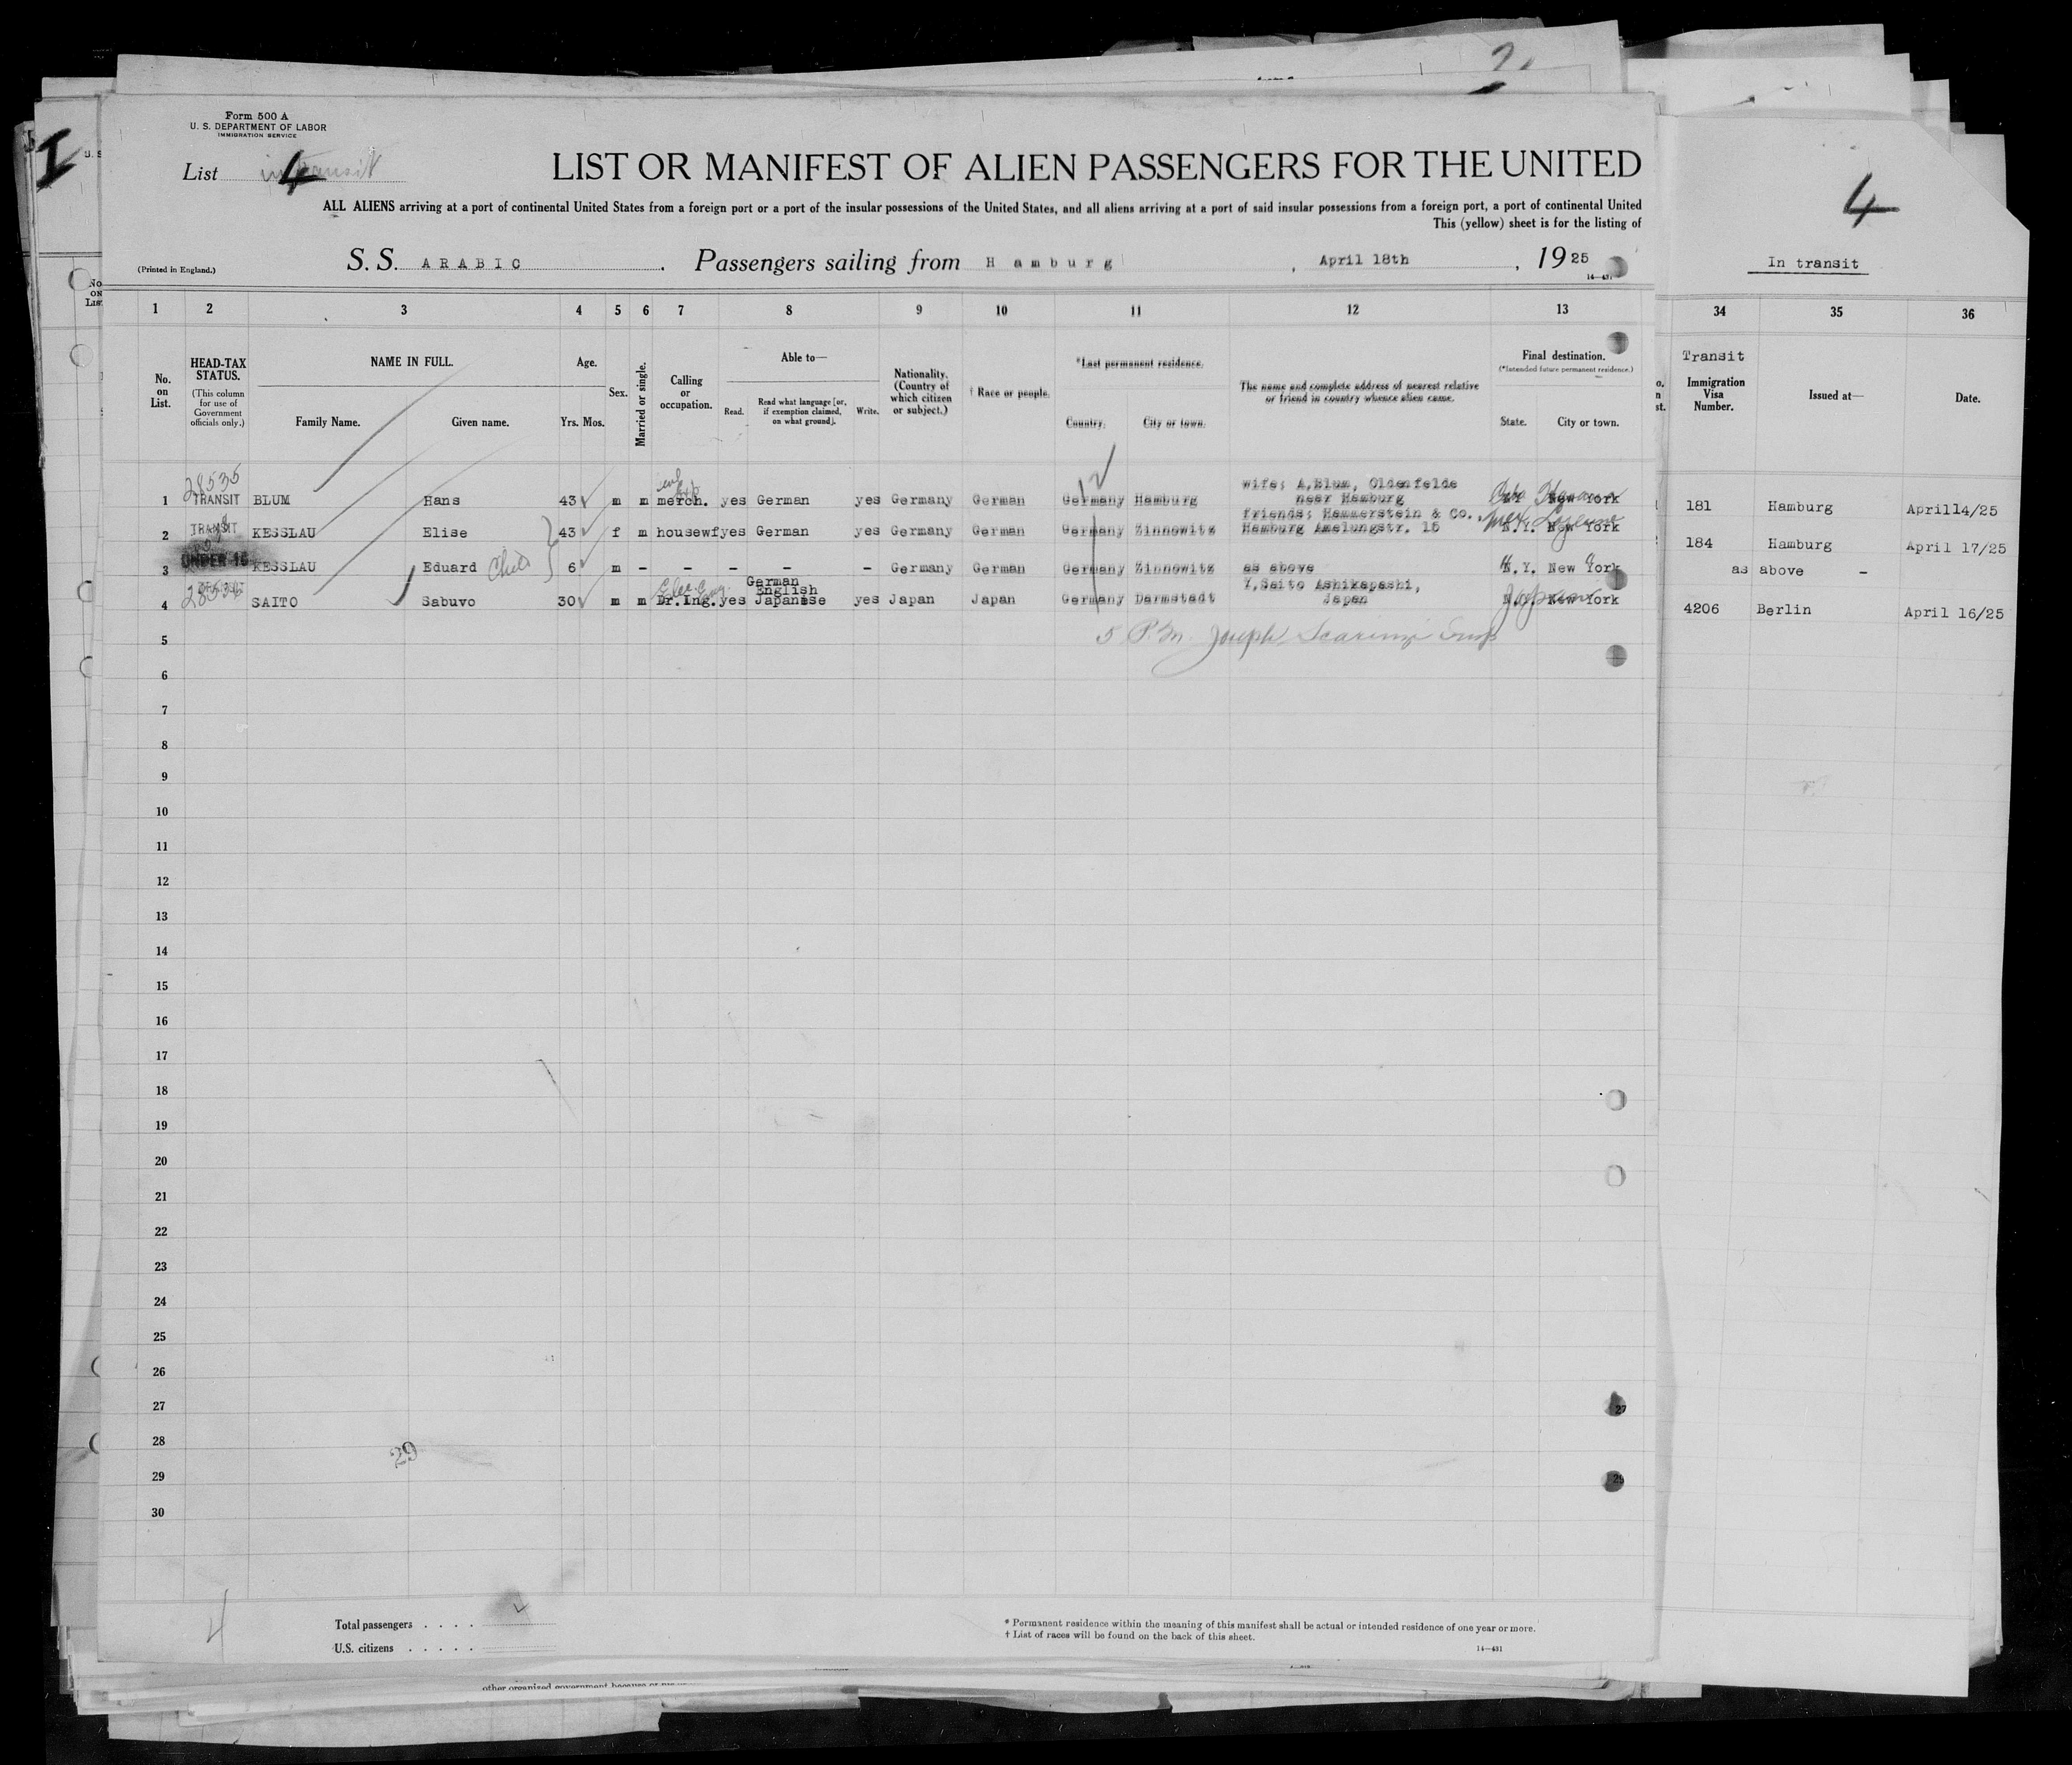 Form 500 A
U. S. DEPARTMENT OF LABOR
IMMIGRATION SERVICE
List in transit 4
LIST OR MANIFEST OF ALIEN PASSENGERS FOR THE UNITED
ALL ALIENS arriving at a port of continental United States from a foreign port or a port of the insular possessions of the United States, and all aliens arriving at a port of said insular possessions from a foreign port, a port of continental United
This (yellow) sheet is for the listing of
(Printed in England.)
S. S. ARABIC . Passengers sailing from Hamburg , April 18th , 1925
14—431
4
In transit
1 2 3 4 5 6 7 8 9 10 11 12 13 34 35 36
No. on List.
HEAD-TAX STATUS.
(This column for use of Government officials only.)
NAME IN FULL.
Family Name. Given name.
Age.
Yrs. Mos.
Sex.
Married or single.
Calling or occupation.
Able to—
Read. Read what language [or, if exemption claimed, on what ground]. Write.
Nationality. (Country of which citizen or subject.)
† Race or people.
*Last permanent residence.
Country. City or town.
The name and complete address of nearest relative or friend in country whence alien came.
Final destination.
(*Intended future permanent residence.)
State. City or town.
Transit
Immigration Visa Number.
Issued at—
Date.
28535
1 TRANSIT BLUM Hans 43 m m merch. yes German yes Germany German Germany Hamburg wife: A,Blum, Oldenfelde near Hamburg New York 181 Hamburg April14/25
2 TRANSIT KESSLAU Elise 43 f m housewf yes German yes Germany German Germany Zinnowitz friends: Hammerstein & Co. Hamburg Amelungstr. 15 N.Y. New York 184 Hamburg April 17/25
3 UNDER 16 KESSLAU Eduard Child 6 m – – – – – Germany German Germany Zinnowitz as above N.Y. New York as above –
4 SAITO Sabuvo 30 m m Elec. Eng. Dr.Ing. yes German English Japanese yes Japan Japan Germany Darmstadt Y,Saito Ashikapashi, Japan Japan New York 4206 Berlin April 16/25
5 5 P.M. Joseph
6
7
8
9
10
11
12
13
14
15
16
17
18
19
20
21
22
23
24
25
26
27 27
28
29
29 29
30
4
Total passengers . . . .
U.S. citizens . . . . .
* Permanent residence within the meaning of this manifest shall be actual or intended residence of one year or more.
† List of races will be found on the back of this sheet.
14—431